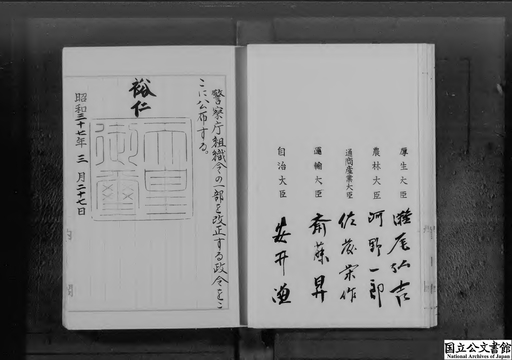 厚生大臣 灘尾弘吉
農林大臣 河野一郎
通商産業大臣 佐藤栄作
運輸大臣 斎藤昇
自治大臣 安井謙
警察庁組織令の一部を改正する政令をこ
こに公布する。
裕仁
天皇
御璽
昭和三十七年三月二十七日
国立公文書館
National Archives of Japan